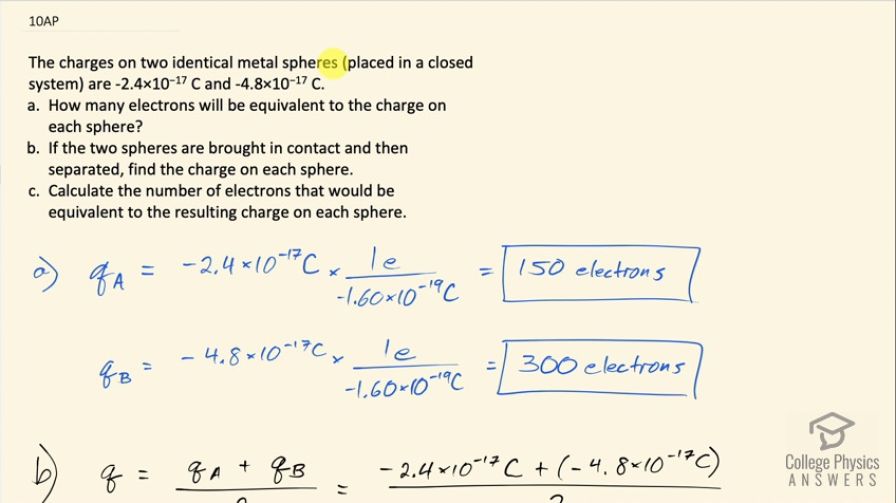 10AP
The charges on two identical metal spheres (placed in a closed
system) are -2.4×10⁻¹⁷ C and -4.8×10⁻¹⁷ C.
a. How many electrons will be equivalent to the charge on
each sphere?
b. If the two spheres are brought in contact and then
separated, find the charge on each sphere.
c. Calculate the number of electrons that would be
equivalent to the resulting charge on each sphere.
a) q_A = -2.4×10⁻¹⁷C × 1e / -1.60×10⁻¹⁹C = 150 electrons
q_B = -4.8×10⁻¹⁷C × 1e / -1.60×10⁻¹⁹C = 300 electrons
b) q = q_A + q_B / 2 = -2.4×10⁻¹⁷C + (-4.8×10⁻¹⁷C) / 2
College Physics
ANSWERS